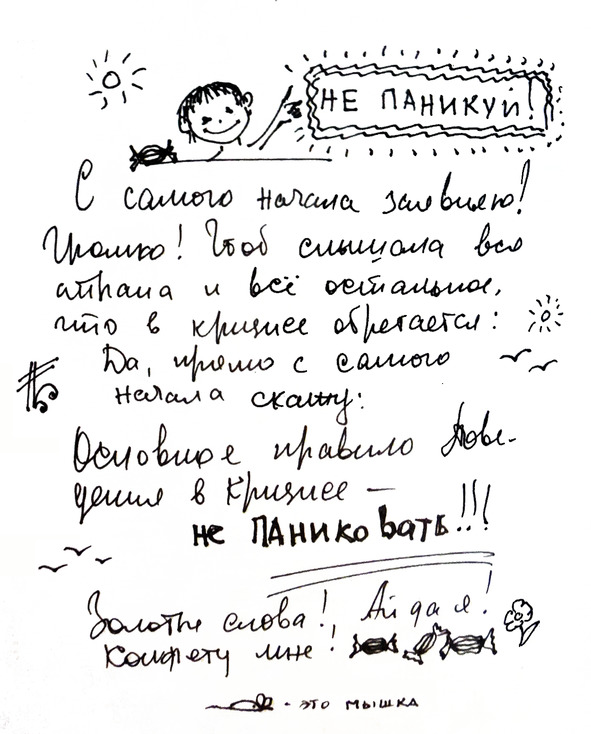 НЕ ПАНИКУЙ!
С самого начала заявляю!
Громко! Чтоб слышала вся
страна и всё остальное,
что в кризисе обретается:
Да, прямо с самого
начала скажу:
Основное правило пове-
дения в кризисе —
не ПАНикоВАТЬ!!!
Золотые слова! Ай да я!
Конфету мне!
- это мышка